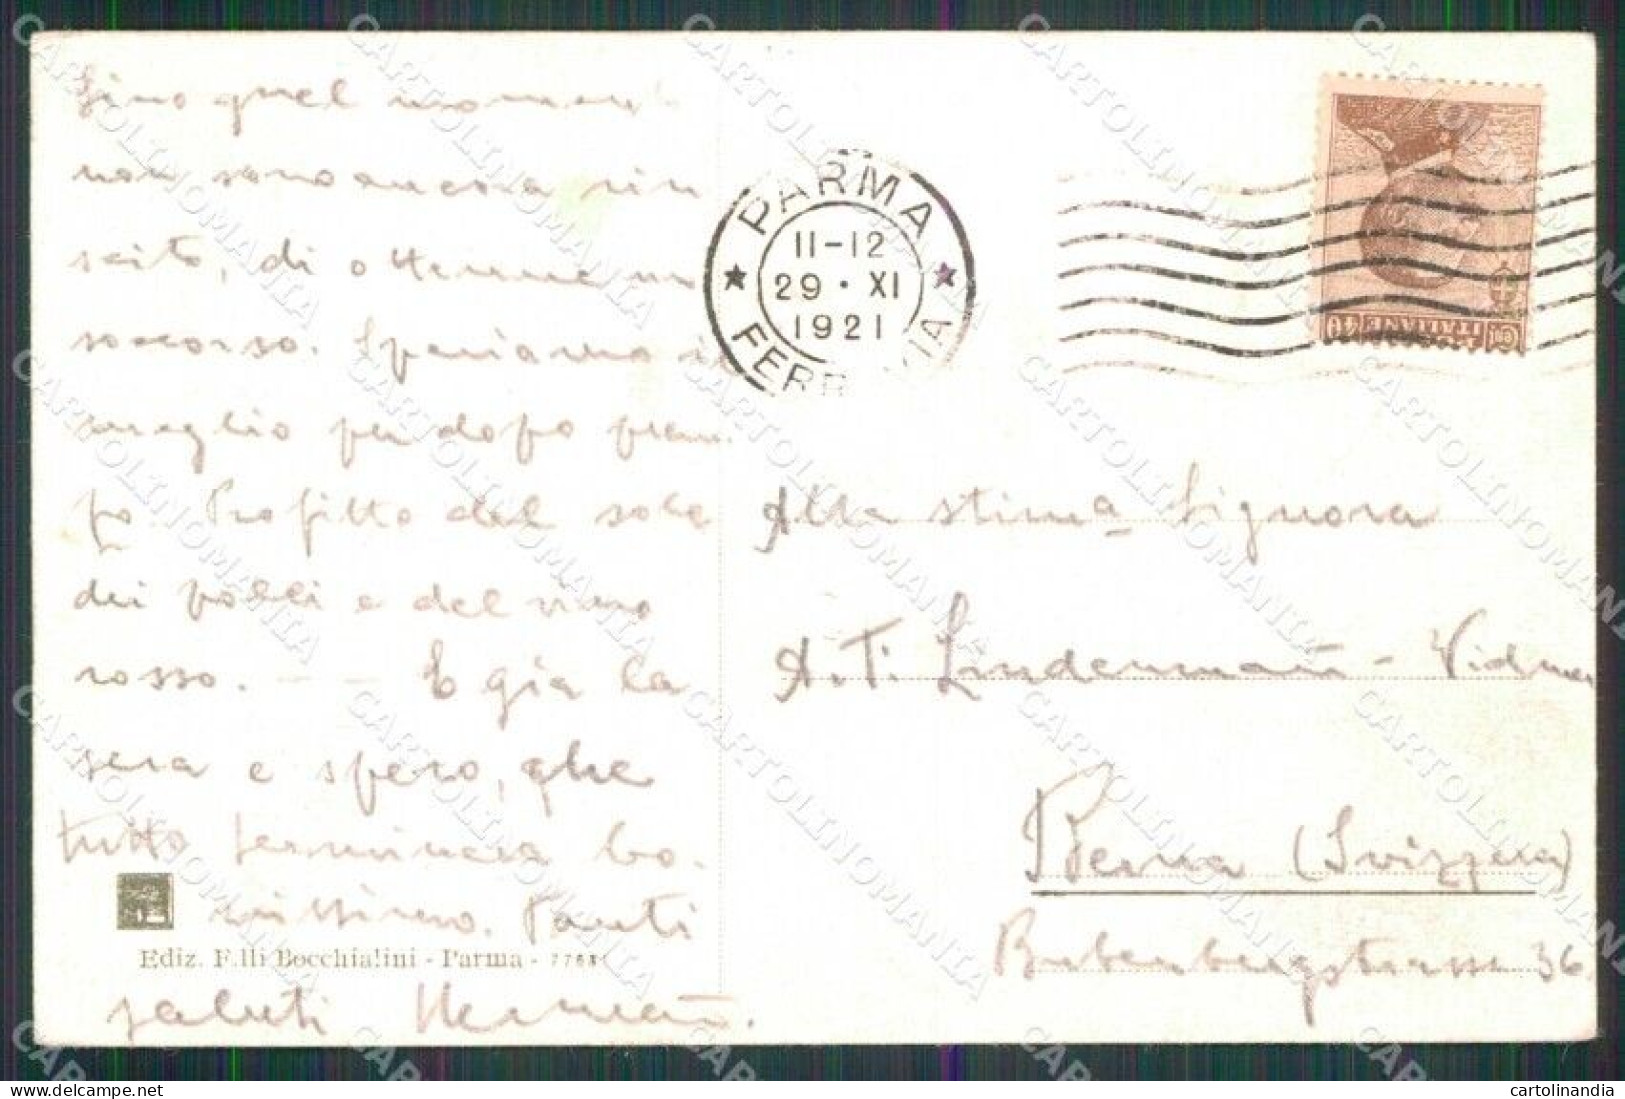 Fino quel momento
non sono ancora riu
scito, di ottenere un
soccorso. Speriamo il
meglio per dopo pran
zo. Profitto del sole
dei polli e del vino
rosso. - - È già la
sera e spero, che
tutto terminerà bo-
nissimo. Tanti
saluti Hermañ.
Ediz. F.lli Bocchialini - Parma - 7768
PARMA
11-12
29 · XI
1921
FERROVIA
POSTE ITALIANE
Cent 40
Alla stima Signora
A. T. Lindenmañ - Widmer
Berna (Svizzera)
Bubenbergstrasse 36.
CARTOLINOMANIA
cartolinandia